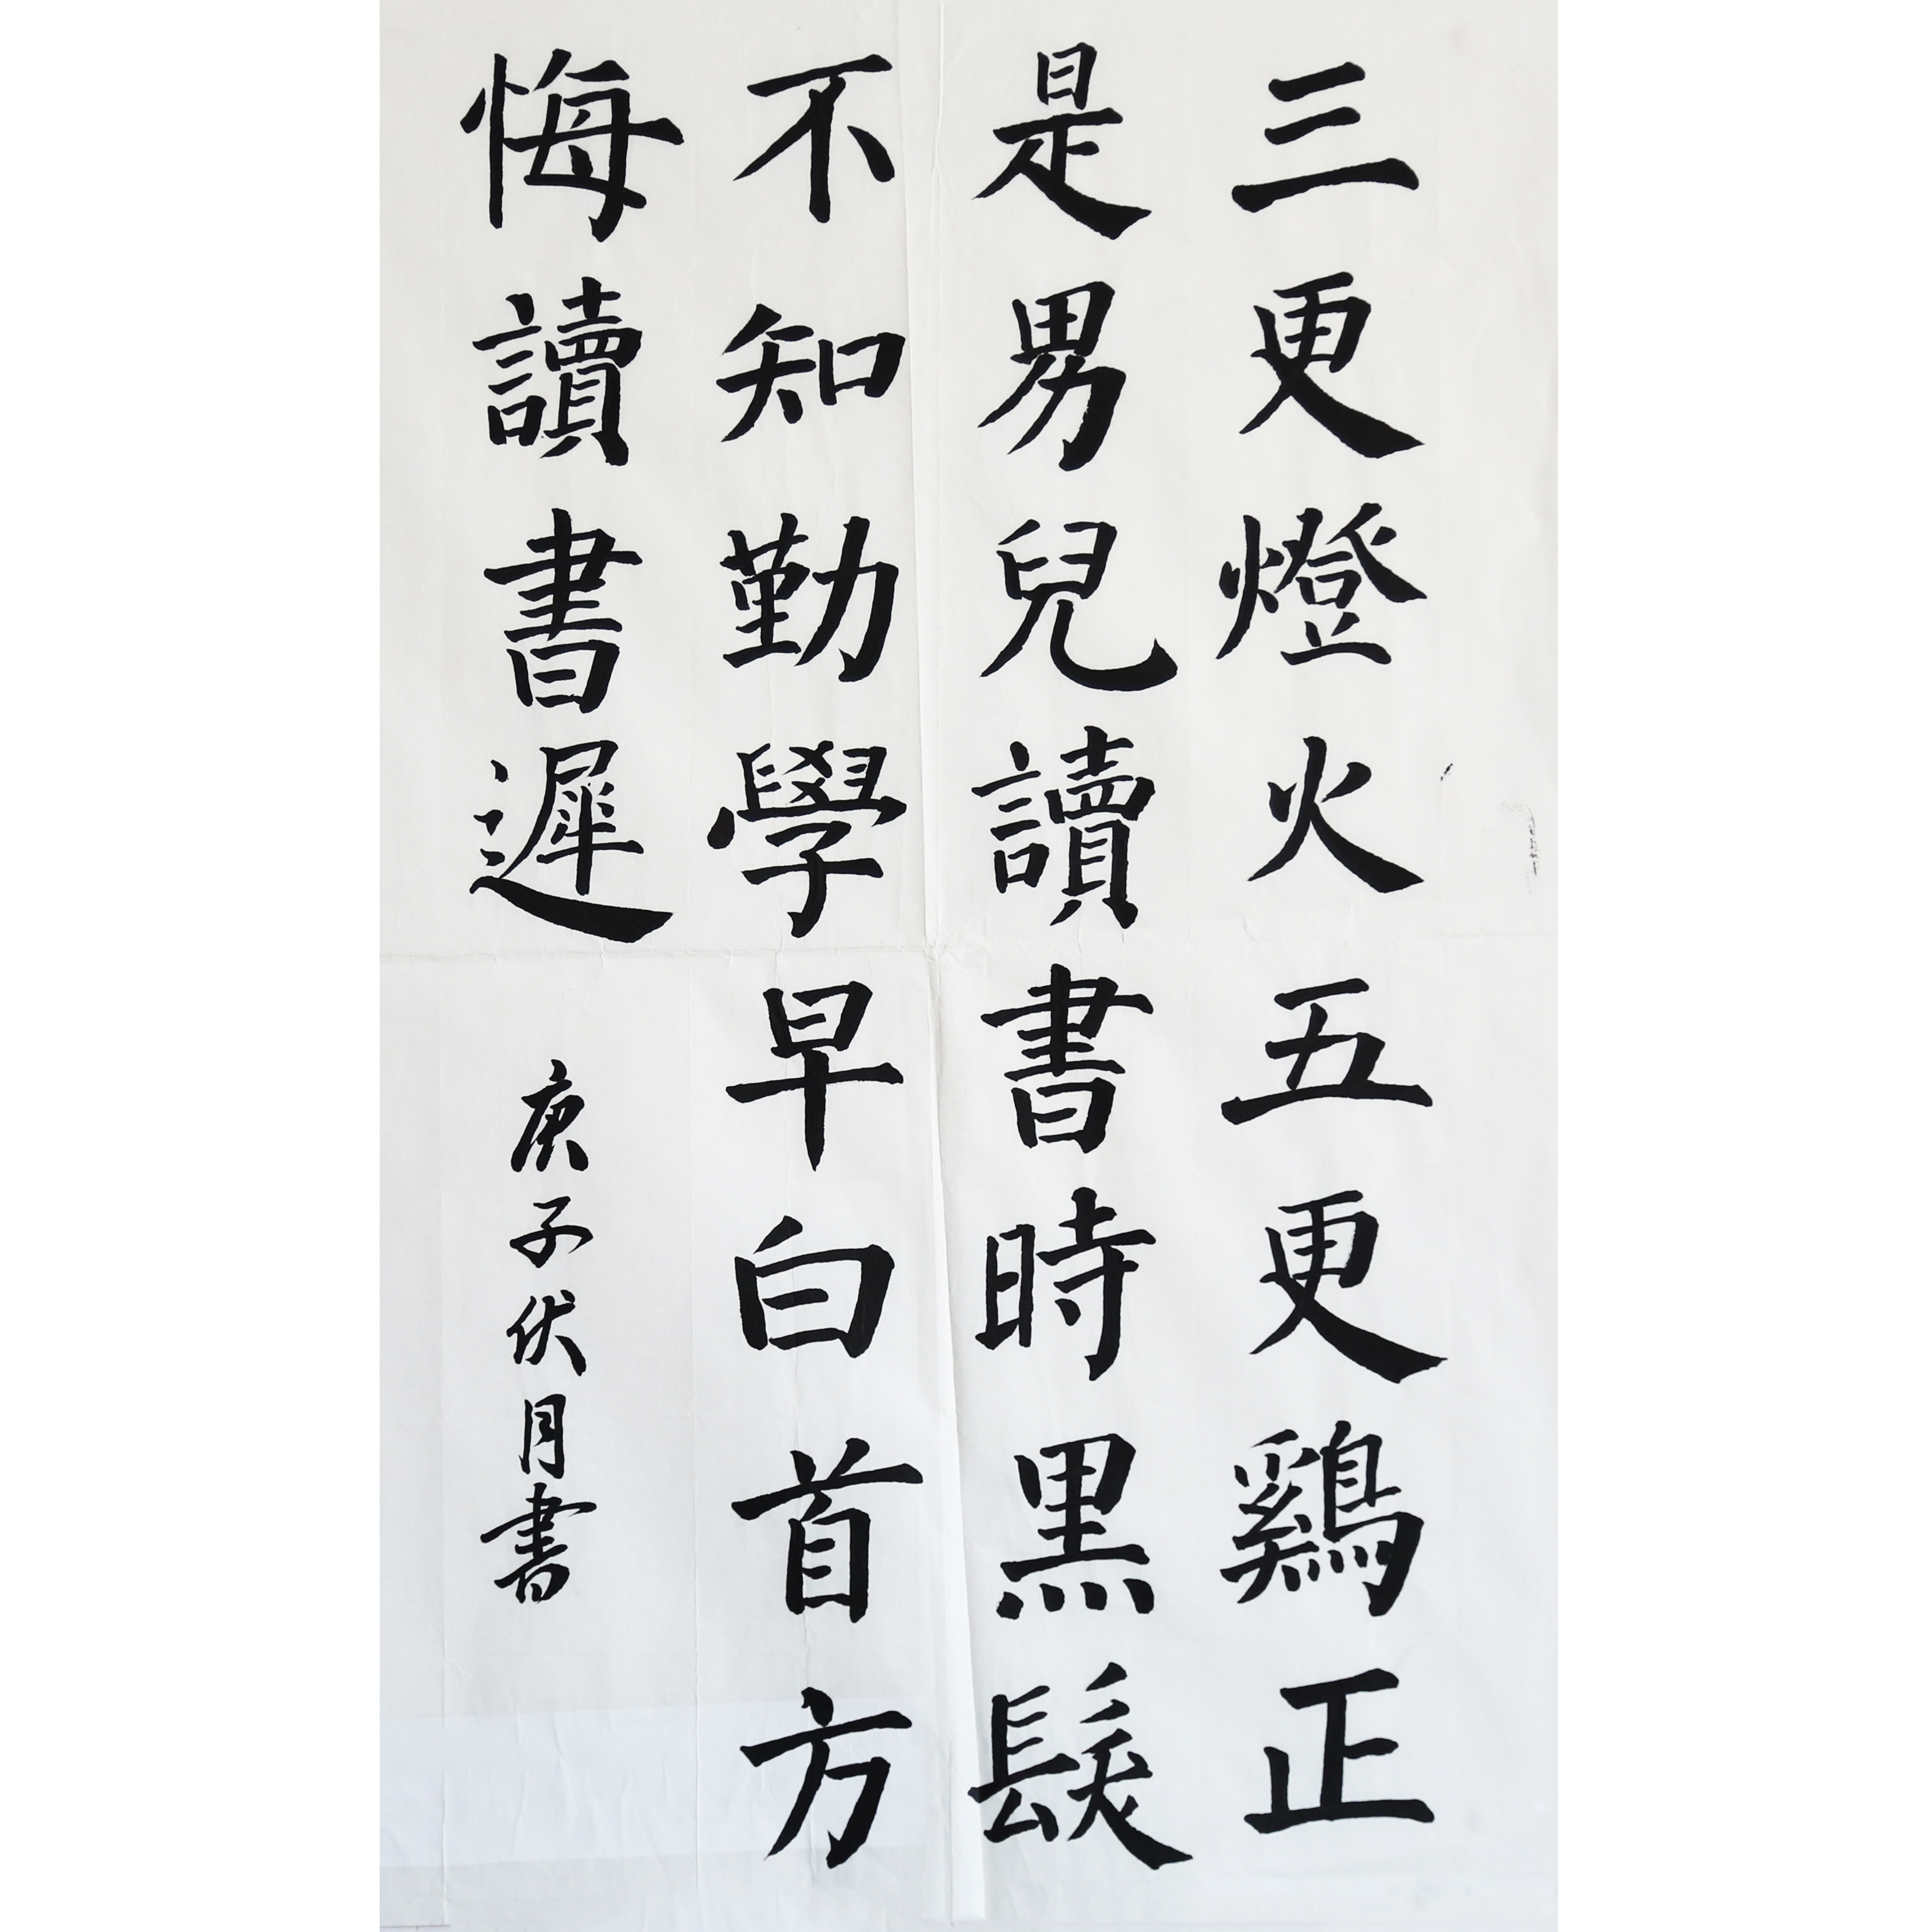 三更燈火五更鷄正
是男兒讀書時黑髮
不知勤學早白首方
悔讀書遲
庚子伏月書